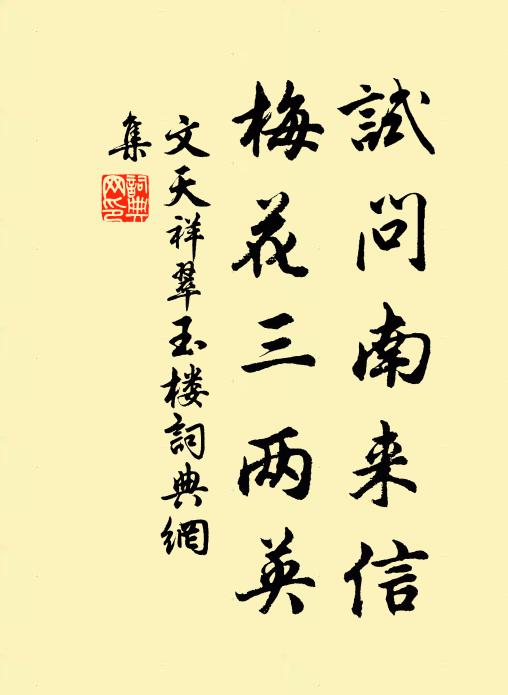 試問南来信
梅花三两英
文天祥翠玉楼詞典網
集
詞典
网印